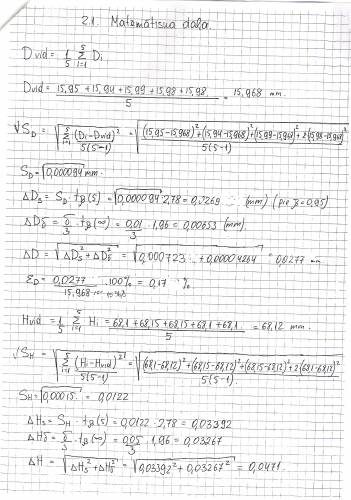 2.1. Matemātiskā daļa.
Dvid = 1/5 5Σi=1 Di
Dvid = (15,95 + 15,94 + 15,99 + 15,98 + 15,98)/5 = 15,968 mm.
√S_D = √(5Σi=1 (Di-Dvid)²/5(5-1)) = √(((15,95-15,968)²+(15,94-15,968)²+(15,99-15,968)²+2(15,98-15,968)²)/5(5-1))
S_D = √0,000094 mm.
ΔDs = S_D · tβ(5) = √0,000094 · 2,78 = 0,0269 (mm) (pie β = 0,95)
ΔDδ = δ/3 · tβ(∞) = 0,01/3 · 1,96 = 0,00653 (mm).
ΔD = √(ΔDs² + ΔDδ²) = √(0,000723 + 0,00004264) = 0,0277 mm
ε_D = 0,0277/15,968 · 100% = 0,17 %
Hvid = 1/5 5Σi=1 Hi = (68,1 + 68,15 + 68,15 + 68,1 + 68,1)/5 = 68,12 mm.
√S_H = √(5Σi=1 (Hi-Hvid)²/5(5-1)) = √(((68,1-68,12)²+(68,15-68,12)²+(68,15-68,12)²+2(68,1-68,12)²)/5(5-1))
S_H = √0,00015 = 0,0122
ΔHs = S_H · tβ(5) = 0,0122 · 2,78 = 0,03392
ΔHδ = δ/3 · tβ(∞) = 0,05/3 · 1,96 = 0,03267
ΔH = √(ΔHs² + ΔHδ²) = √(0,03392² + 0,03267²) = 0,0471.